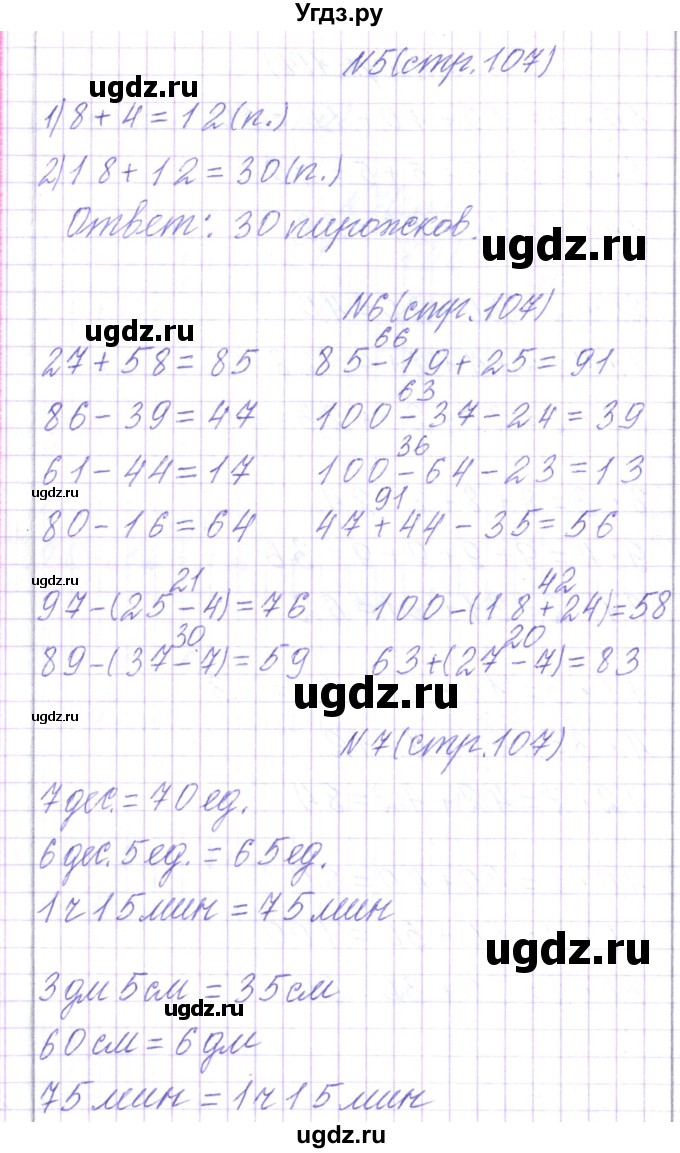 Угдз.ру
N5(стр.107)
ugdz.ru
1) 8 + 4 = 12(п.)
2) 18 + 12 = 30(п.)
Ответ: 30 пирожков.
ugdz.ru
N6(стр.107)
ugdz.ru
66
27 + 58 = 85 85 - 19 + 25 = 91
63
86 - 39 = 47 100 - 37 - 24 = 39
36
61 - 44 = 17 100 - 64 - 23 = 13
ugdz.ru
91
80 - 16 = 64 47 + 44 - 35 = 56
ugdz.ru
21 42
97 - (25 - 4) = 76 100 - (18 + 24) = 58
30 20
89 - (37 - 7) = 59 63 + (27 - 7) = 83
ugdz.ru
ugdz.ru
N7(стр.107)
7 дес. = 70 ед.
6 дес. 5 ед. = 65 ед.
1 ч 15 мин = 75 мин
ugdz.ru
3 дм 5 см = 35 см
ugdz.ru
60 см = 6 дм
75 мин = 1 ч 15 мин
ugdz.ru